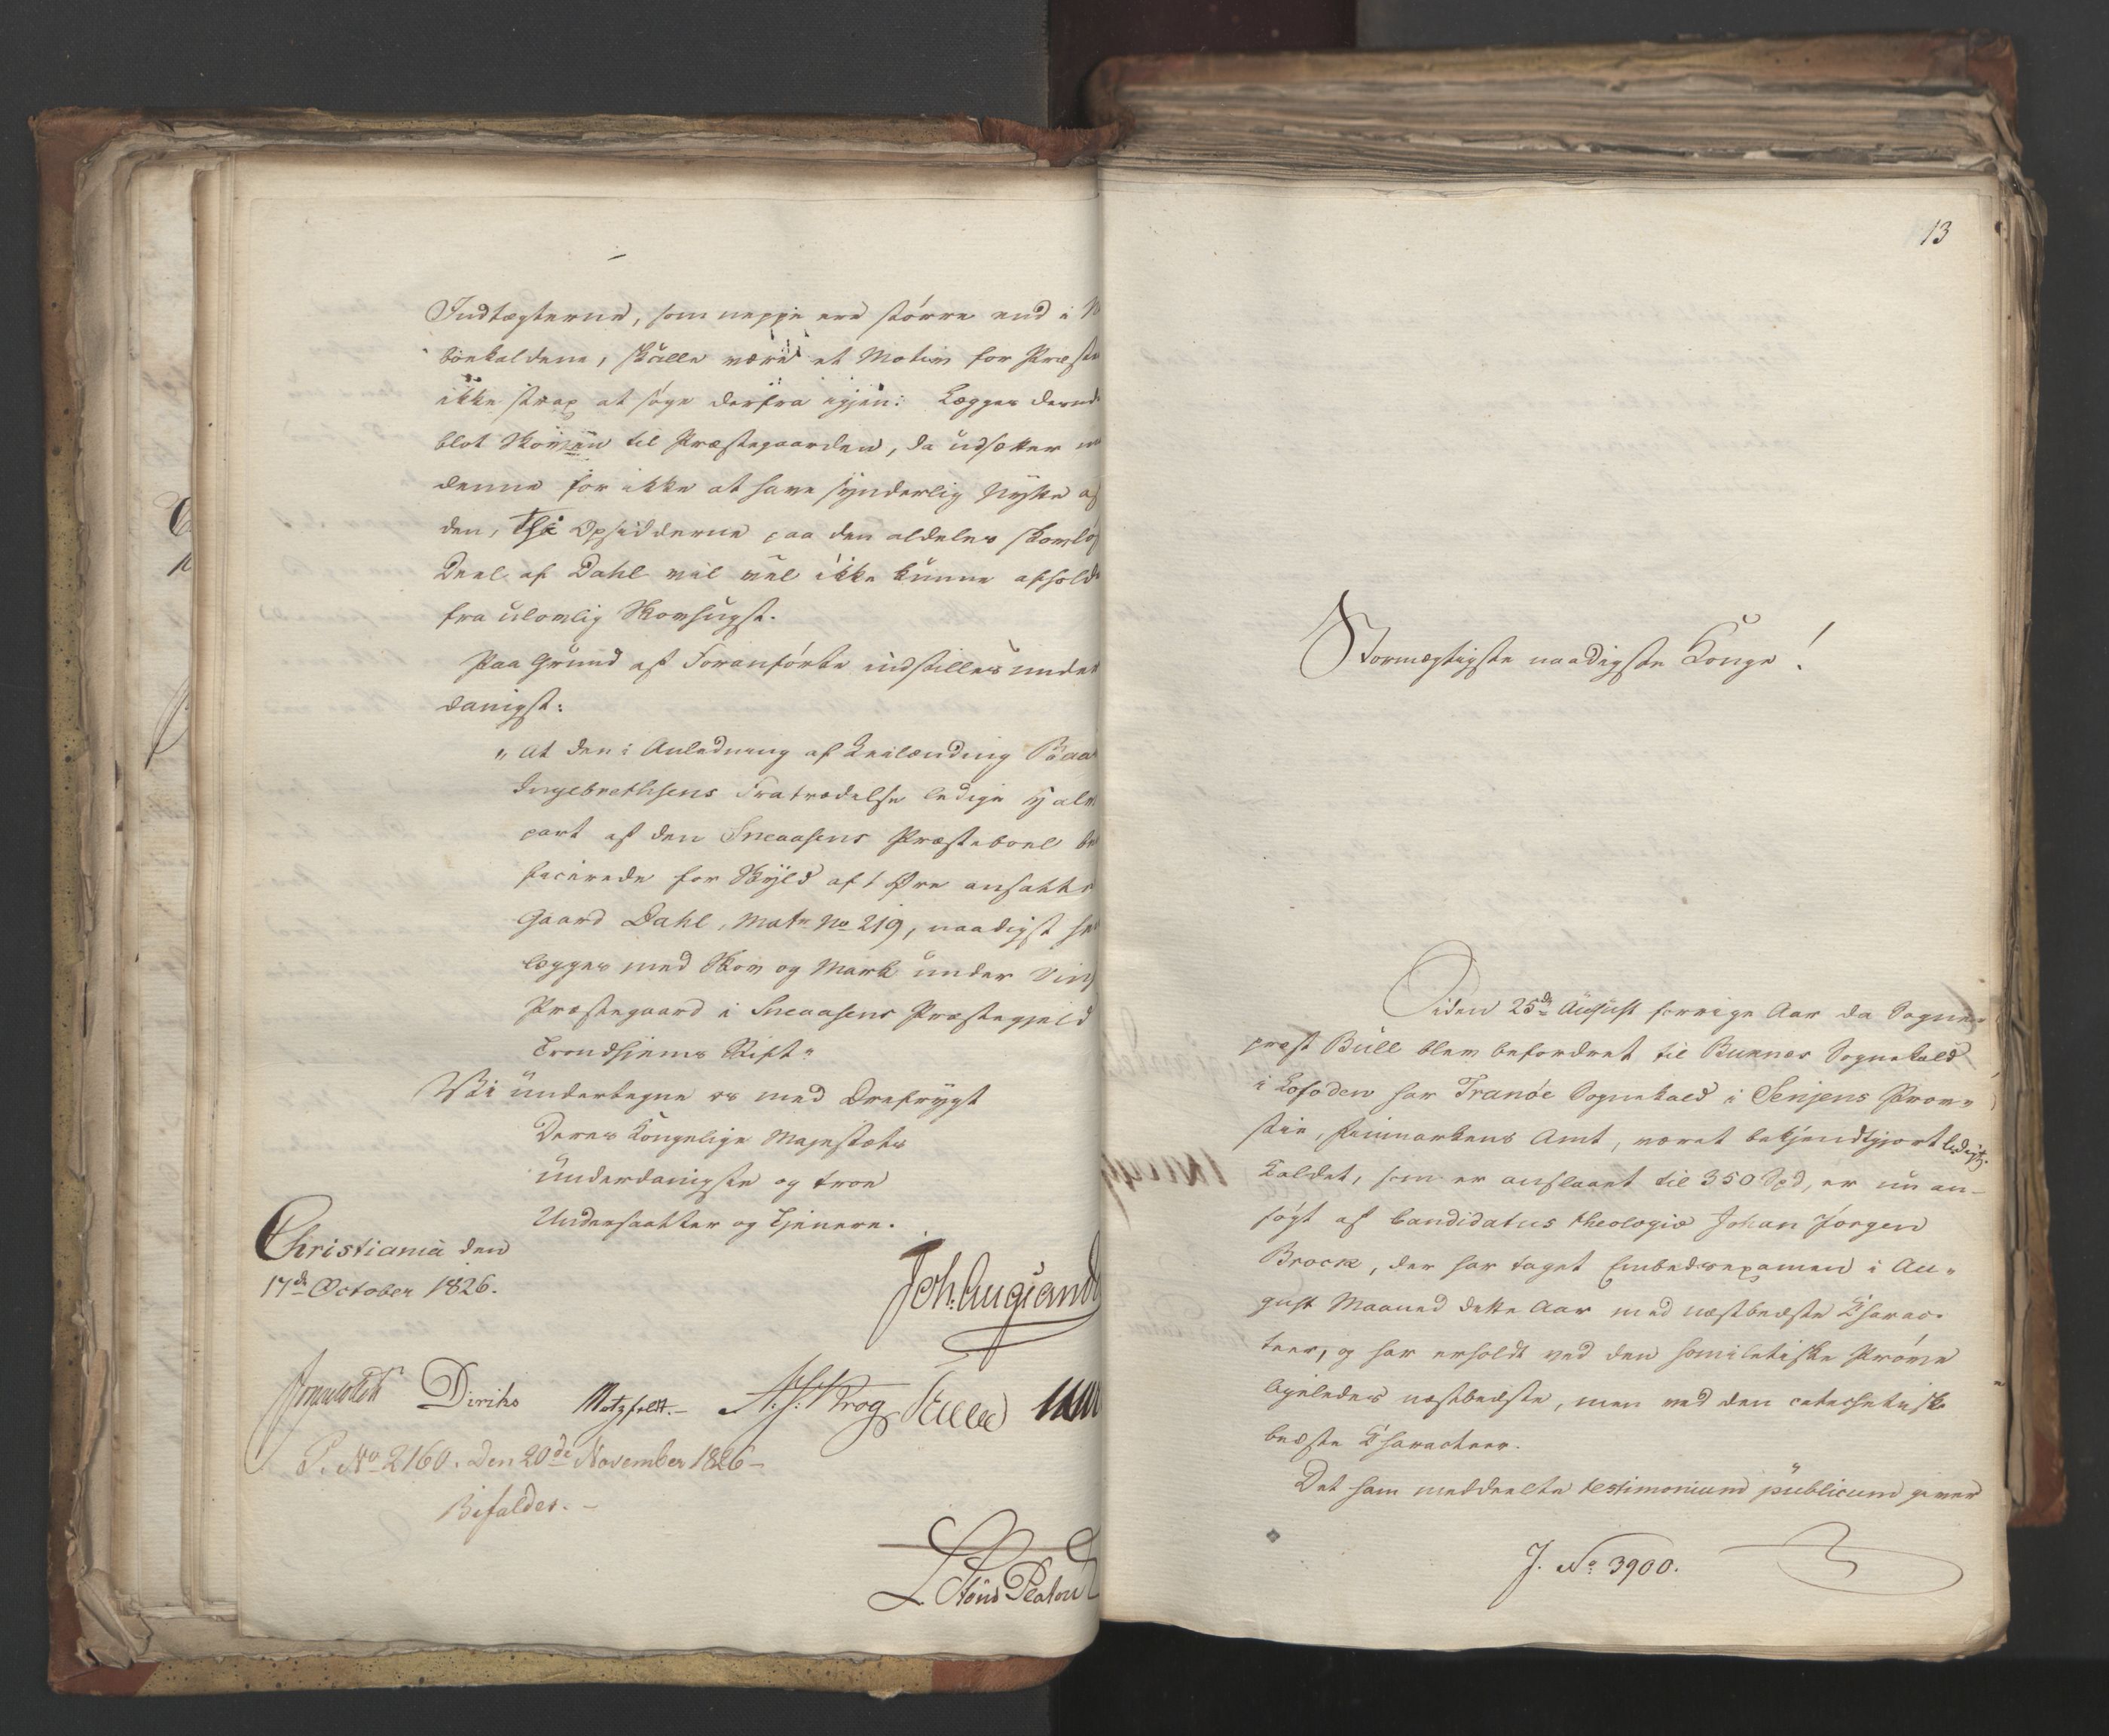 Indtægterne, som neppe ere større end i N
bøekaldene, skulle være et Motiv for Præste
ikke strax at søge derfra igjen: Lægges derud
blot Skoven til Præstegaarden, da udsætter m
denne for ikke at have synderlig Nytte af
den, Thi Opsidderne paa den aldeles skovlø
Deel af Dahl vil vel ikke kunne afhold
fra ulovlig Skovhugst.
Paa Grund af Foranførte indstilles under
danigst:
"at den i Anledning af Leilænding Baa
Ingebrethsens Fratrædelse ledige Halv
part af den Sneaasens Præsteboel be
ficerede for Skyld af 1 Øre ansatte
Gaard Dahl, Matr No 219, naadigst he
lægges med Skov og Mark under Vin
Præstegaard i Sneaasens Præstegjeld
Trondhiems Stift"
Vi undertegne os med Ærefrygt
Deres Kongelige Majestæts
underdanigste og troe
Undersaatter og Tjenere.
Christiania den
17de October 1826.
Joh. Aug Sand
Diriks Motzfeldt. Krog
P. No 2160. Den 20de November 1826
Bifaldes.
L. Stoud Platou
13
Stormægtigste naadigste Konge!
Siden 25de August forrige Aar da Sogne-
præst Bull blev befordret til Buxnes Sognekald
i Lofoden har Tranöe Sognekald i Senjens Prov-
stie, Finmarkens Amt, været bekjendtgjort ledigt.
Kaldet, som er anslaaet til 350 Spd, er nu an-
søgt af Candidatus theologiæ Johan Jørgen
Brock, der har taget Embedsexamen i Au-
gust Maaned dette Aar med næstbedste Charac-
teer, og har erholdt ved den homiletiske Prøve
ligeledes næstbedste, men ved den catechetiske
bedste Characteer.
Det ham meddeelte testimonium publicum giver
J. No 3900.